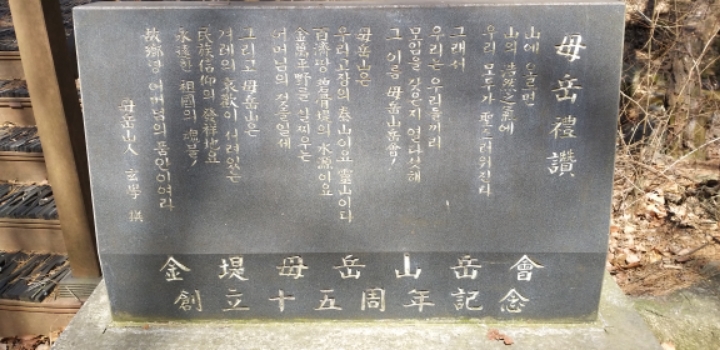 母岳禮讚
山에 오르면
山의 浩然之氣에
우리 모두가  靈스러워진다
그래서
우리는 우리들끼리
모임을 갖은지 열다섯해
그 이름 母岳山岳會!
母岳山은
우리고장의 泰山이요 靈山이다
百濟땅 碧骨堤의 水源이요
金萬平野를 살찌우는
어머님의 젖줄일세
그리고 母岳山은
겨레의 哀歡이 서려있는
民族信仰의 發祥地요
永遠한 祖國의 魂불!
故鄕녘 어머님의 품안이여라
母岳山人 玄學 撰
金堤母岳山岳會
創立十五周年記念